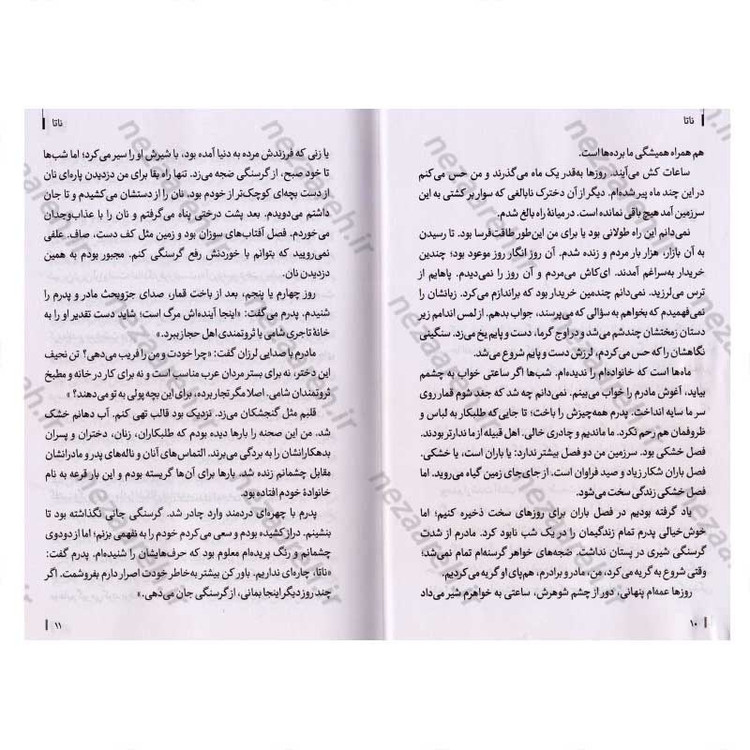 ناتا
هم همراه همیشگی ما برده‌ها است.
ساعات کش می‌آیند. روزها به‌قدر یک ماه می‌گذرند و من حس می‌کنم
در این چند ماه پیر شده‌ام. دیگر از آن دخترک نابالغی که سوار بر کشتی به این
سرزمین آمد هیچ باقی نمانده است. در میانهٔ راه بالغ شدم.
نمی‌دانم این راه طولانی بود یا برای من این‌طور طاقت‌فرسا بود. تا رسیدن
به آن بازار، هزار بار مردم و زنده شدم. آن روز انگار روز موعود بود؛ چندین
خریدار به‌سراغم آمدند. ای‌کاش می‌مردم و آن روز را نمی‌دیدم. پاهایم از
ترس می‌لرزید. نمی‌دانم چندمین خریدار بود که براندازم می‌کرد. زبانشان را
نمی‌فهمیدم که بخواهم به سؤالی که می‌پرسند، جواب بدهم. از لمس اندامم زیر
دستان زمختشان چندشم می‌شد و در اوج گرما، دست و پایم یخ می‌زد. سنگینی
نگاهشان را که حس می‌کردم، لرزش دست و پایم شروع می‌شد.
ماه‌ها است که خانواده‌ام را ندیده‌ام. شب‌ها اگر ساعتی خواب به چشمم
بیاید، آغوش مادرم را خواب می‌بینم. نمی‌دانم چه شد که جغد شوم قمار روی
سر ما سایه انداخت. پدرم همه‌چیزش را باخت؛ تا جایی‌که طلبکار به لباس و
ظروفمان هم رحم نکرد. ما ماندیم و چادری خالی. اهل قبیله از ما ندارتر بودند.
فصل خشکی بود. سرزمین من دو فصل بیشتر ندارد: یا باران است، یا خشکی.
فصل باران شکار زیاد و صید فراوان است. از جای‌جای زمین گیاه می‌روید. اما
فصل خشکی زندگی سخت می‌شود.
یاد گرفته بودیم در فصل باران برای روزهای سخت ذخیره کنیم؛ اما
خوش‌خیالی پدرم تمام زندگیمان را یک شب نابود کرد. مادرم از شدت
گرسنگی شیری در پستان نداشت. ضجه‌های خواهر گرسنه‌ام تمام نمی‌شد؛
وقتی شروع به گریه می‌کرد، من، مادر و برادرم، هم‌پای او گریه می‌کردیم.
روزها عمه‌ام پنهانی، دور از چشم شوهرش، ساعتی به خواهرم شیر می‌داد
۱۰
ناتا
یا زنی که فرزندش مرده به دنیا آمده بود، با شیرش او را سیر می‌کرد؛ اما شب‌ها
تا خود صبح، از گرسنگی ضجه می‌زد. تنها راه بقا برای من دزدیدن پاره‌ای نان
از دست بچه‌ای کوچک‌تر از خودم بود. نان را از دستشان می‌کشیدم و تا جان
داشتم می‌دویدم. بعد پشت درختی پناه می‌گرفتم و نان را با عذاب‌وجدان
می‌خوردم. فصل آفتاب‌های سوزان بود و زمین مثل کف دست، صاف. علفی
نمی‌رویید که بتوانم با خوردنش رفع گرسنگی کنم. مجبور بودم به همین
دزدیدن نان.
روز چهارم یا پنجم، بعد از باخت قمار، صدای جروبحث مادر و پدرم را
شنیدم. پدرم می‌گفت: «اینجا آینده‌اش مرگ است؛ شاید دست تقدیر او را به
خانهٔ تاجری شامی یا ثروتمندی اهل حجاز ببرد.»
مادرم با صدایی لرزان گفت: «چرا خودت و من را فریب می‌دهی؟ تن نحیف
این دختر، نه برای بستر مردان عرب مناسب است و نه برای کار در خانه و مطبخ
ثروتمندان شامی. اصلا مگر تجار برده، برای این بچه پولی به تو می‌دهند؟»
قلبم مثل گنجشکان می‌زد. نزدیک بود قالب تهی کنم. آب دهانم خشک
شد. من این صحنه را بارها دیده بودم که طلبکاران، زنان، دختران و پسران
بدهکارانشان را به بردگی می‌برند. التماس‌های آنان و ناله‌های پدر و مادرانشان
مقابل چشمانم زنده شد. بارها برای آن‌ها گریسته بودم و این بار قرعه به نام
خانوادهٔ خودم افتاده بود.
پدرم با چهره‌ای دردمند وارد چادر شد. گرسنگی جانی نگذاشته بود تا
بنشینم. دراز کشیده بودم و سعی می‌کردم خودم را به نفهمی بزنم؛ اما از دودوی
چشمانم و رنگ پریده‌ام معلوم بود که حرف‌هایشان را شنیده‌ام. پدرم گفت:
«ناتا، چاره‌ای نداریم. باور کن بیشتر به‌خاطر خودت اصرار دارم بفروشمت. اگر
چند روز دیگر اینجا بمانی، از گرسنگی جان می‌دهی.»
۱۱
nezaareh.ir